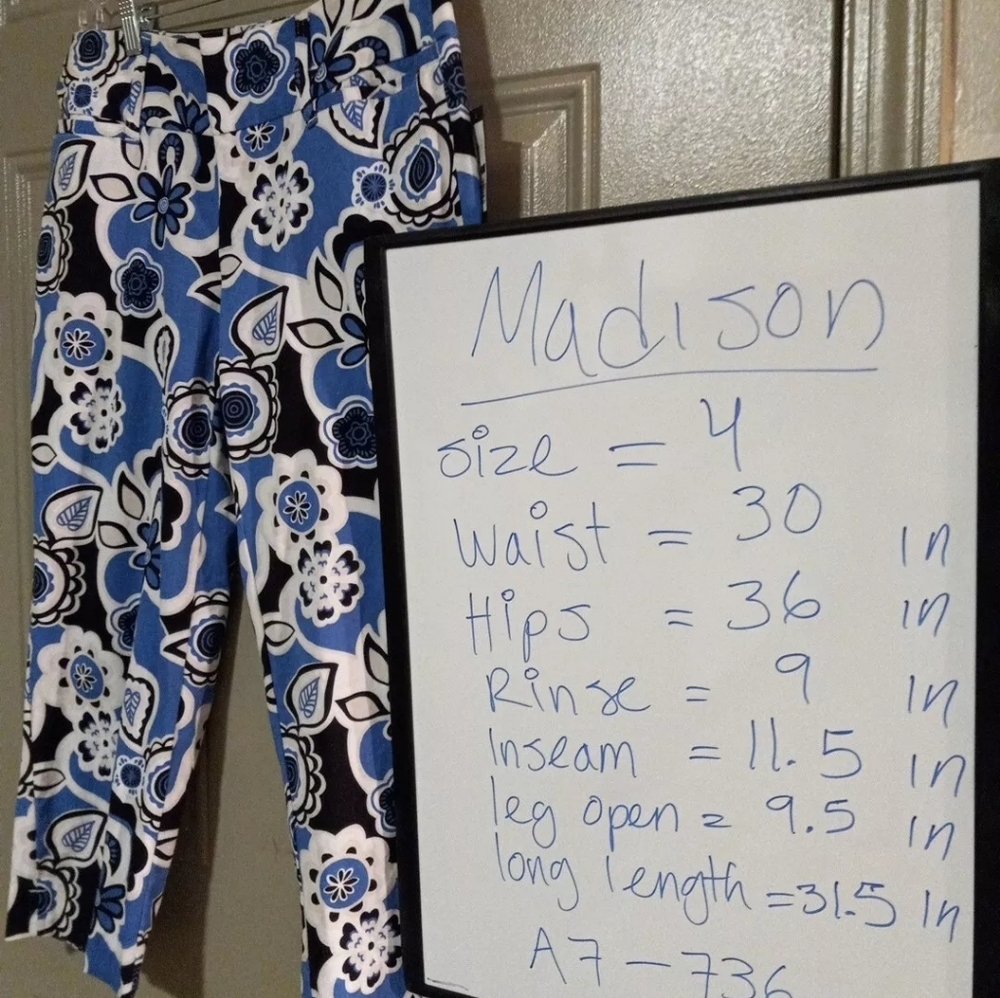 Madison
size = 4
Waist = 30 in
Hips = 36 in
Rinse = 9 in
Inseam = 11.5 in
leg open = 9.5 in
long length = 31.5 in
A7 - 736